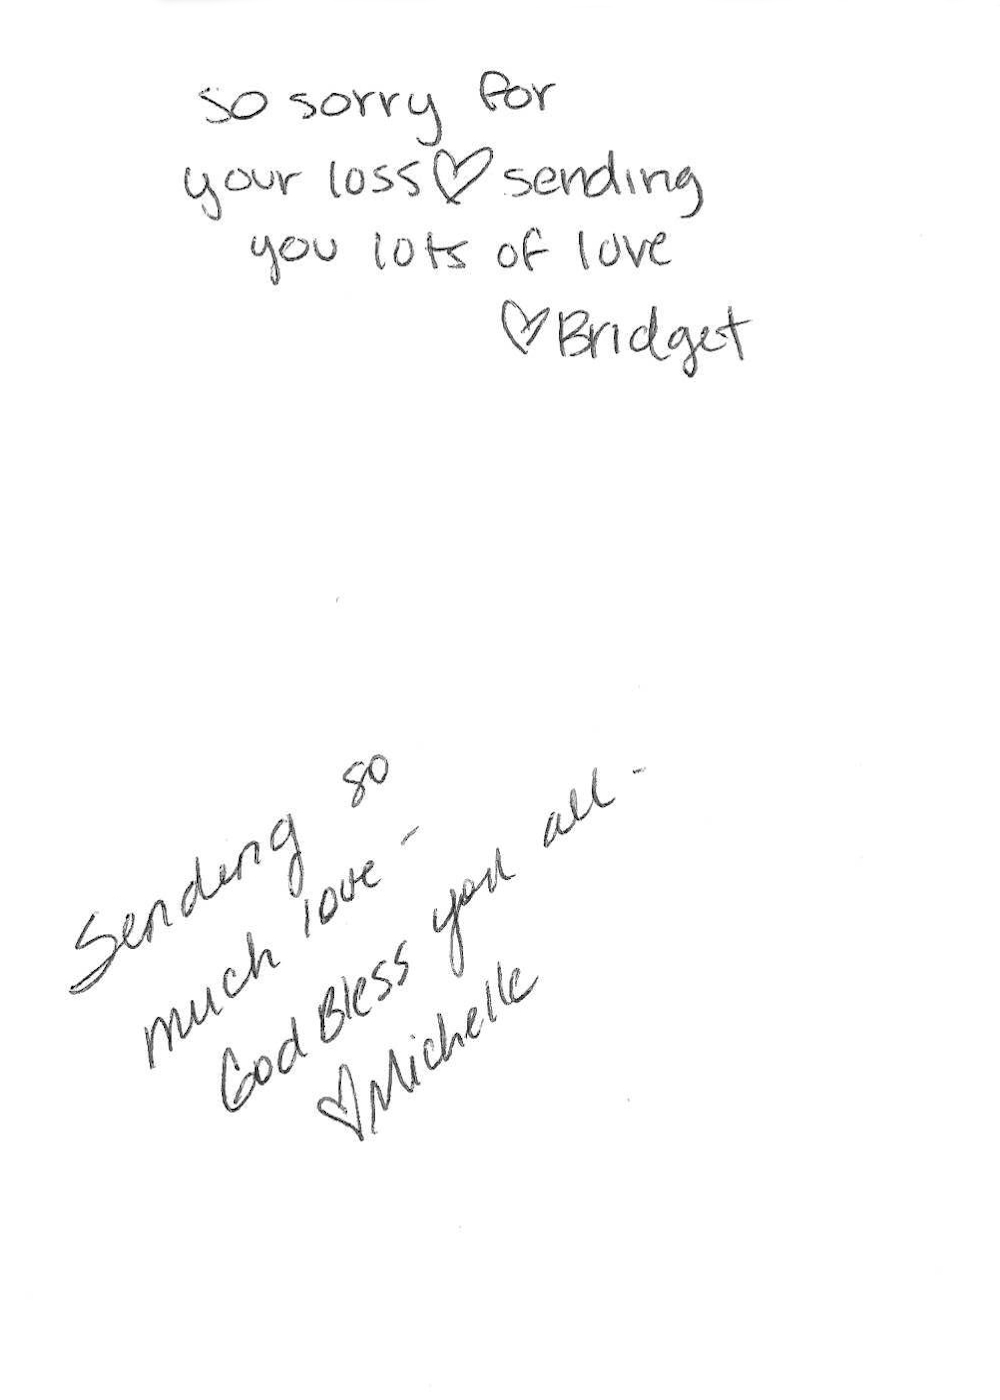 so sorry for
your loss♡sending
you lots of love
♡Bridget
Sending so
much love -
God Bless you all -
♡Michelle